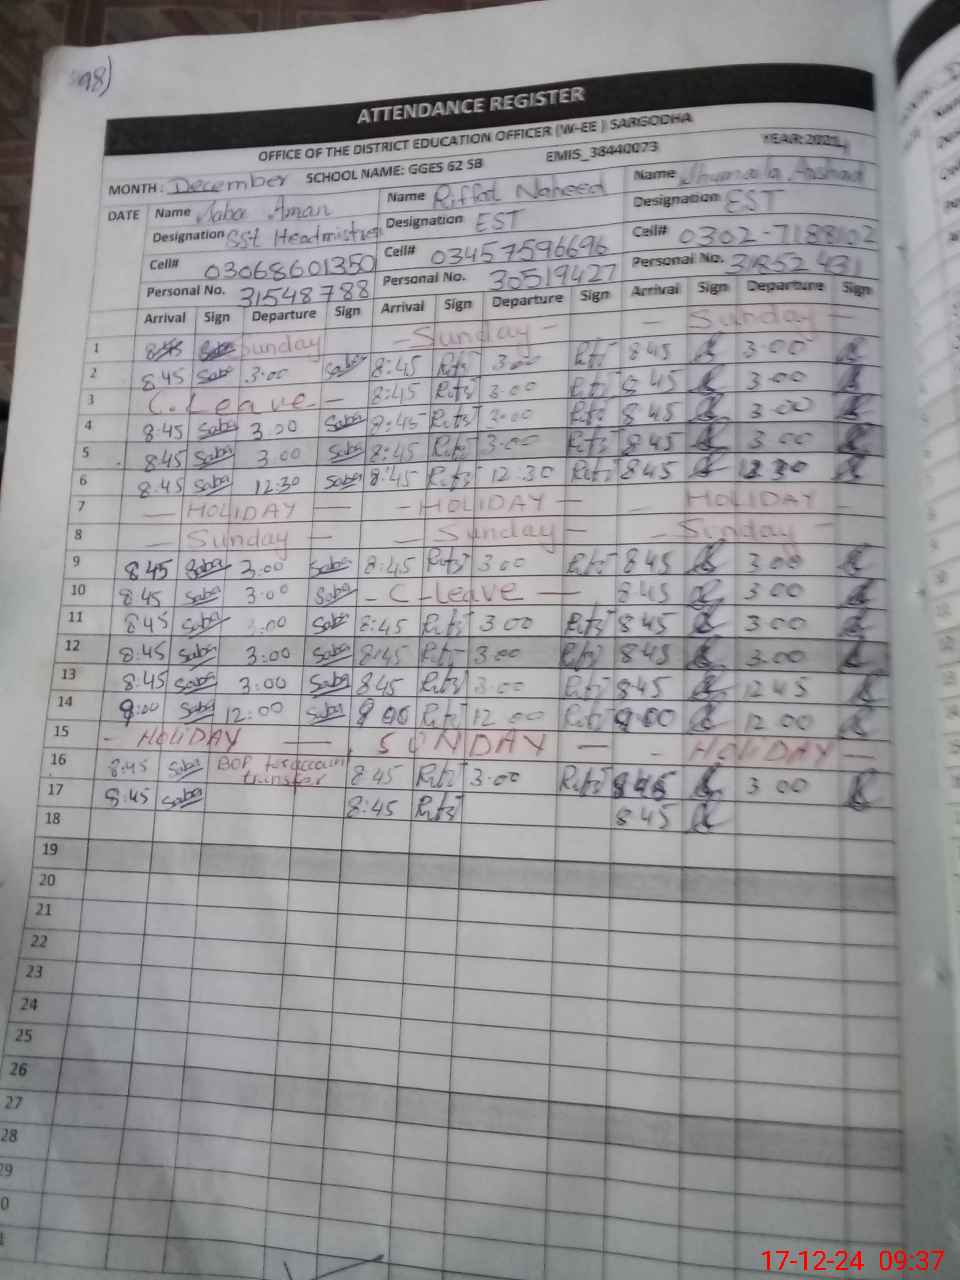 98)
ATTENDANCE REGISTER
OFFICE OF THE DISTRICT EDUCATION OFFICER (W-EE ) SARGODHA
MONTH : December SCHOOL NAME: GGES 62 SB EMIS_38440073 YEAR 2024
DATE Name Saba Aman Name Riffat Naheed Name Shumaila Arshad
Designation SSt Headmistress Designation EST Designation EST
Cell# 03068601350 Cell# 03457596696 Cell# 0302-7188102
Personal No. 31548788 Personal No. 30519427 Personal No. 31852431
Arrival Sign Departure Sign Arrival Sign Departure Sign Arrival Sign Departure Sign
1 8:45 Saba Sunday - Sunday - - Sunday -
2 8:45 Saba 3:00 Saba 8:45 3:00 8 45 3.00
3 C. Leave - 8:45 3:00 8 45 3.00
4 8:45 Saba 3:00 Saba 8:45 3:00 8 45 3.00
5 8:45 Saba 3:00 Saba 8:45 3:00 8 45 3 00
6 8:45 Saba 12:30 Saba 8:45 12.30 8 45 12 30
7 - HOLIDAY - - HOLIDAY - - HOLIDAY -
8 - Sunday - - Sunday - - Sunday -
9 8 45 Saba 3:00 Saba 8:45 3 00 8 45 3 00
10 8:45 Saba 3:00 Saba - C-Leave - 8 45 3 00
11 8:45 Saba 3:00 Saba 8:45 3 00 8 45 3 00
12 8:45 Saba 3:00 Saba 8:45 3 00 8 45 3.00
13 8:45 Saba 3:00 Saba 8 45 3.00 8 45 12 45
14 9:00 Saba 12:00 Saba 9 00 12 00 9.00 12 00
15 - HOLIDAY - SUNDAY - - HOLIDAY -
16 8:45 Saba BOP for account transfer 8 45 3:00 8 45 3 00
17 8:45 Saba 8:45 8 45
18
19
20
21
22
23
24
25
26
27
28
29
17-12-24 09:37